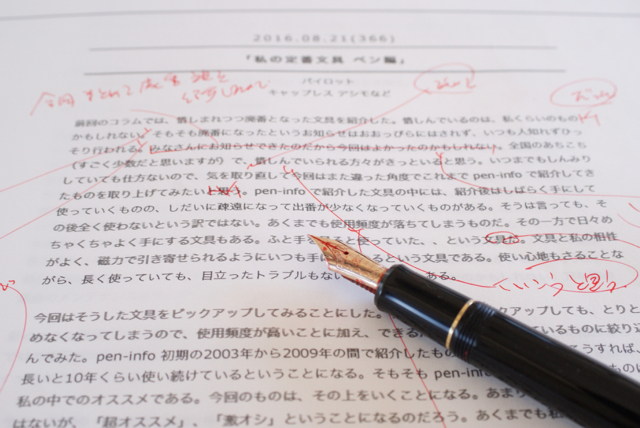 2016.08.21(366)
「私の定番文具 ペン編」
パイロット
キャップレス デシモなど
前回のコラムでは、惜しまれつつ廃番となった文具を紹介した。惜しんでいるのは、私くらいのもの
かもしれない。そもそも廃番になったというお知らせはおおっぴらにはされず、いつも人知れずひっ
そり行われる。みなさんにお知らせできたのだから今回はよかったのかもしれない。全国のあちこち
(すごく少数だと思いますが)で、惜しんでいられる方々がきっといると思う。いつまでもしんみり
していても仕方ないので、気を取り直して今回はまた違った角度でこれまで pen-info で紹介してき
たものを取り上げてみたい。pen-info で紹介した文具の中には、紹介後はしばらく手にして
使っていくものの、しだいに疎遠になって出番が少なくなっていくものがある。そうは言っても、そ
の後全く使わないという訳ではない。あくまでも使用頻度が落ちてしまうものだ。その一方で日々め
ちゃくちゃよく手にする文具もある。ふと手を見ると使っていた、、という文具だ。文具と私の相性
がよく、磁力で引き寄せられるようにいつも手にするという文具である。使い心地もさることな
がら、長く使っていても、目立ったトラブルもない ある。
今回はそうした文具をピックアップしてみることにした。 ックアップしても、とりと
めなくなってしまうので、使用頻度が高いことに加え、できる ているものに絞り
んでみた。pen-info 初期の2003年から2009年の間で紹介したもの そうすれば、
長いと10年くらい使い続けているということになる。そもそも pen-in
私の中でのオススメである。今回のものは、その上をいくことになる。あまり
はないが、「超オススメ」、「激オシ」ということになるのだろう。あくまでも私
今回
という
と思う